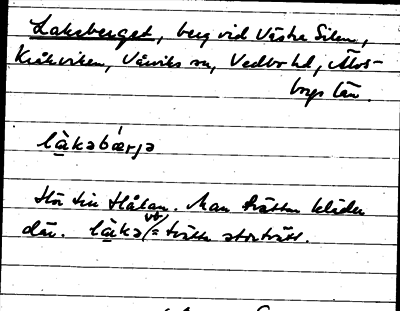 Lakeberget, berg vid Västra Silen,
Kråkviken, Vårviks sn, Vedbo hd, Älvs-
borgs län.
lạ̀kəbǽrjə
Hör till Håkan. Man tvättar kläder
där. lạ̀kə vb = tvätta stortvätt.